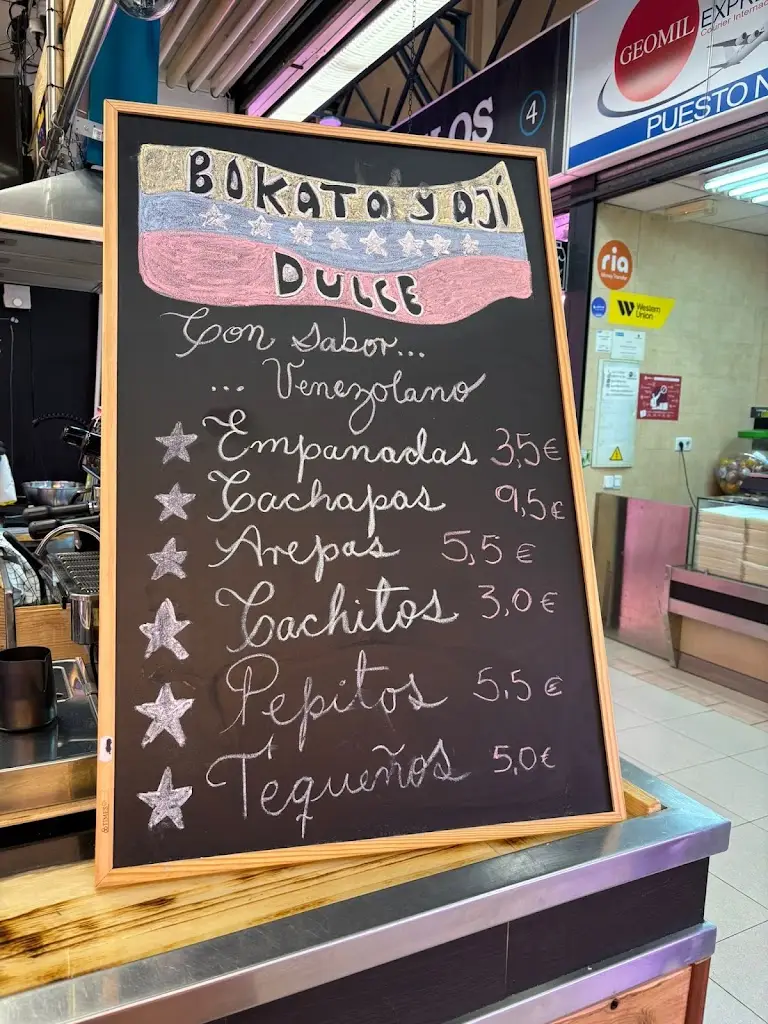 BOKATA y AJÍ
DULCE
Con Sabor...
... Venezolano
Empanadas 3,5€
Cachapas 9,5€
Arepas 5,5€
Cachitos 3,0€
Pepitos 5,5€
Tequeños 5,0€
LOS
4
GEOMIL EXPR
Courier Interna
PUESTO N
ria
Western
Union